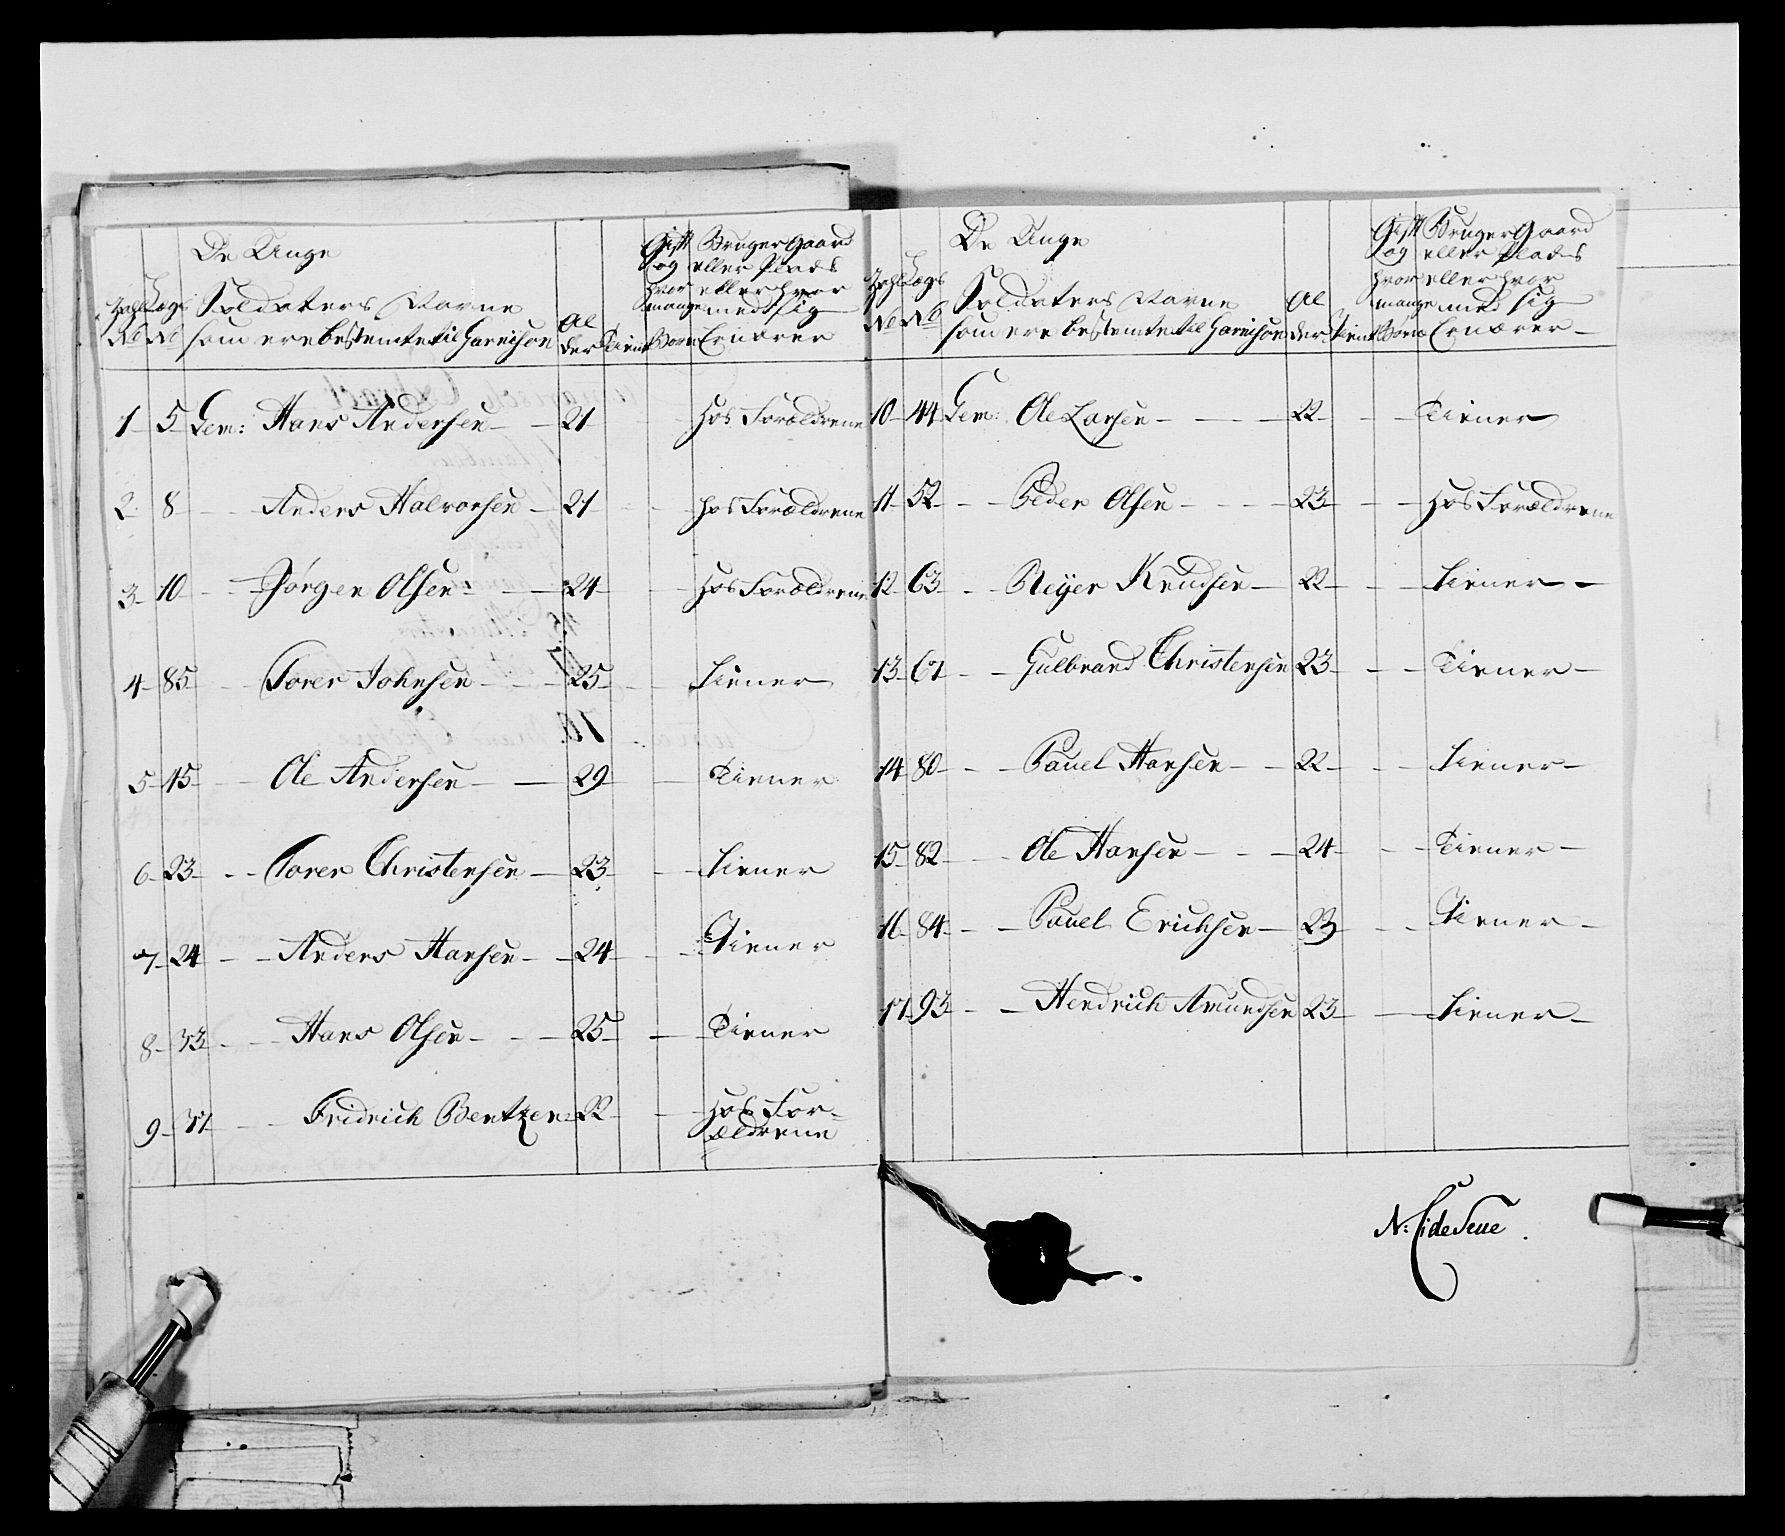 De Unge
Soldaters Navne
som ere bestemte til Garnison
Zahl No
Lægs No
Al
der
Tient
Gift
og
hvor
mange
Børn
Bruger Gaard
eller Plads
eller hvor
med sig
Ernærer
1 5 Gem: Hans Andersen 21 Hos Forældrene
2 8 Anders Halvorsen 21 hos Forældrene
3 10 Jørgen Olsen 24 Hos Forældrene
4 85 Torer Johnsen 25 tiener
5 15 Ole Andersen 29 Tiener
6 23 Torer Christensen 23 tiener
7 24 Anders Hansen 24 Tiener
8 33 Hans Olsen 25 Tiener
9 37 Fridrich Bentzen 22 Hos For-
ældrene
De Unge
Soldaters Navne
som ere bestemte til Garnison
Zahl No
Lægs No
Al
der
Tient
Gift
og
hvor
mange
Børn
Bruger Gaard
eller Plads
eller hvor
med sig
Ernærer
10 44 Gem: Ole Larsen 22 Tiener
11 52 Peder Olsen 23 Hos Forældrene
12 63 Reyer Knudsen 22 tiener
13 67 Gulbrand Christensen 23 Tiener
14 80 Pauel Hansen 22 tiener
15 82 Ole Hansen 24 Tiener
16 84 Pauel Erichsen 23 Tiener
17 93 Hendrich Amundsen 23 tiener
N: